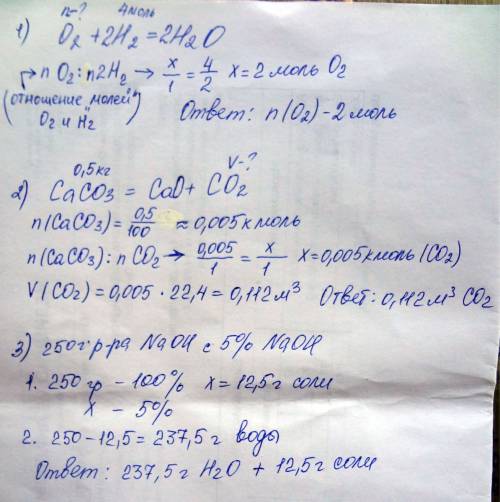 n-? 4моль
1) O₂ + 2H₂ = 2H₂O
→ n O₂ : n2H₂ → x/1 = 4/2 x = 2 моль O₂
(отношение "молей" O₂ и H₂)
Ответ: n(O₂) - 2 моль
0,5кг V-?
2) CaCO₃ = CaO + CO₂
n(CaCO₃) = 0,5/100 ≈ 0,005 кмоль
n(CaCO₃) : nCO₂ → 0,005/1 = x/1 x = 0,005 кмоль (CO₂)
V(CO₂) = 0,005 · 22,4 = 0,112 м³ Ответ: 0,112 м³ CO₂
3) 250г р-ра NaOH с 5% NaOH
1. 250 гр – 100% x = 12,5 г соли
x – 5%
2. 250 – 12,5 = 237,5 г воды
Ответ: 237,5 г H₂O + 12,5 г соли